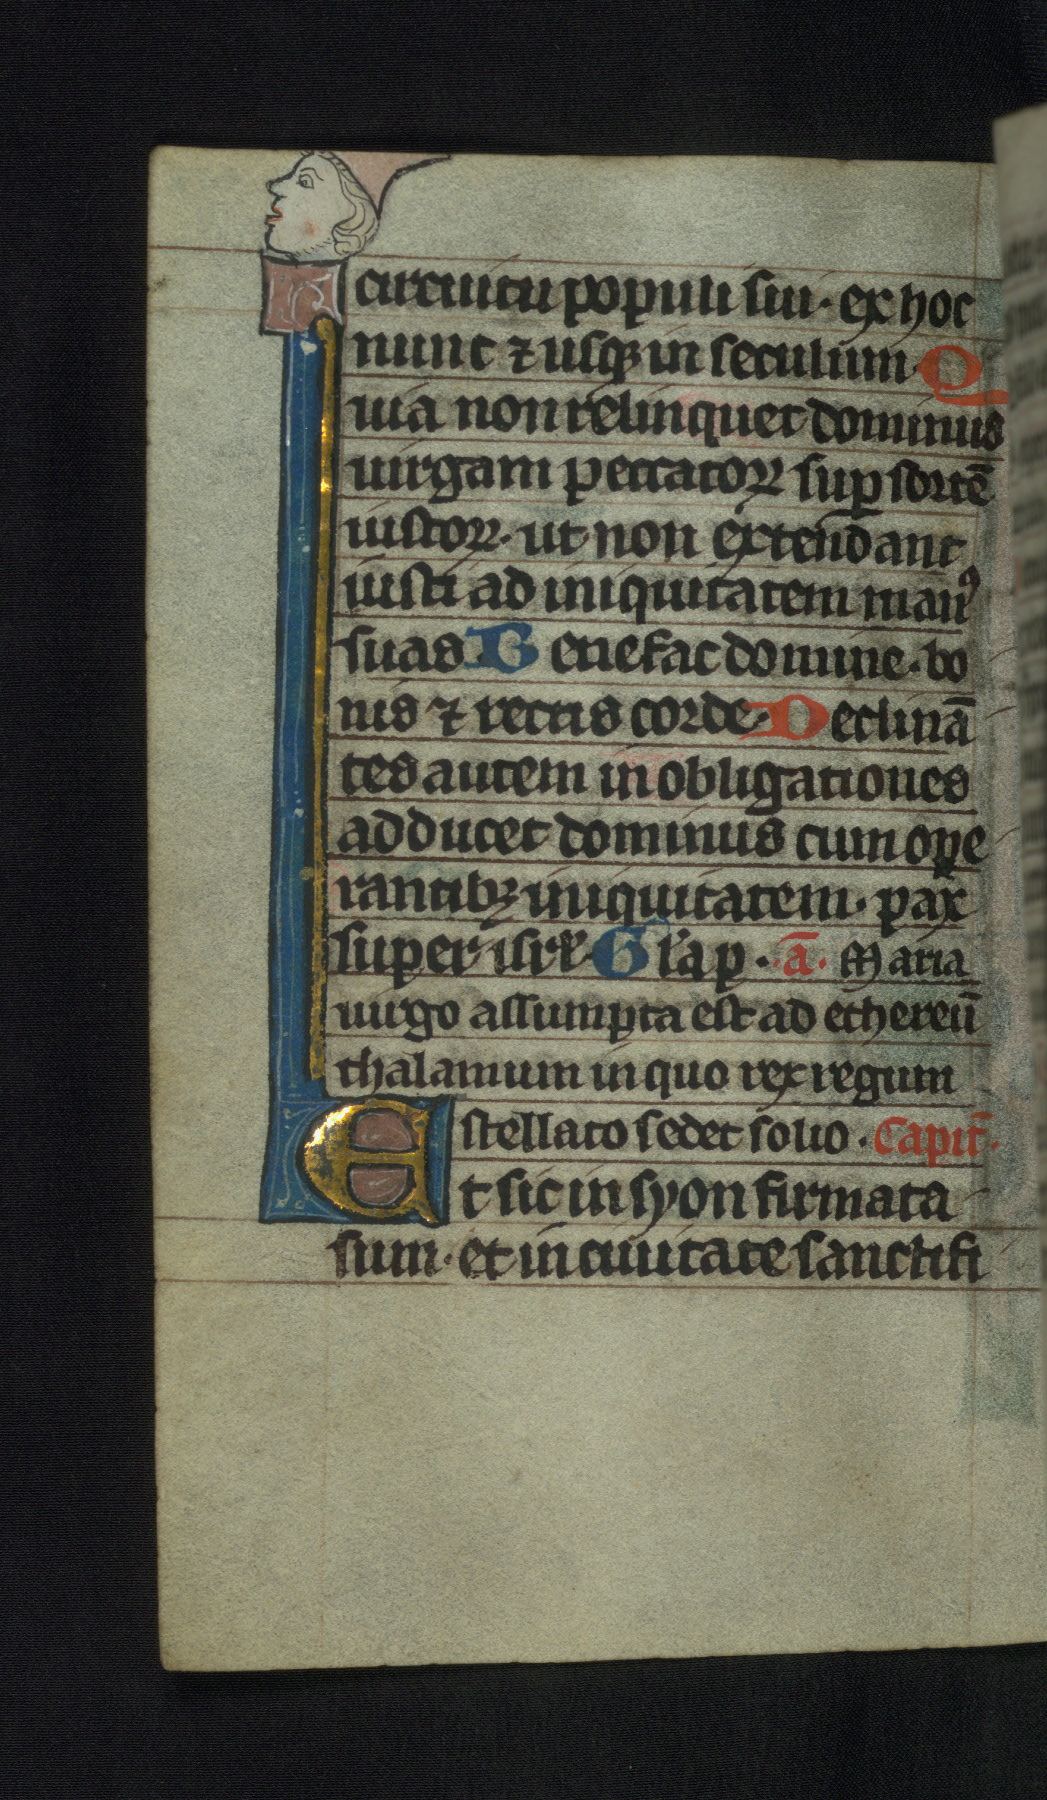 circuitu populi sui· ex hoc
nunc ⁊ usqꝫ in seculum· Q
uia non relinquet dominus
uirgam peccatoꝝ sup̱ sortē
iustoꝝ· ut non extendant
iusti ad iniquitatem manꝰ
suas· B enefac domine· bo
nis ⁊ rectis corde· Declinā
tes autem in obligationes
adducet dominus cum ope
rantibꝫ iniquitatem· pax
super isrl̓· G lr̓a p · ā· Maria
uirgo assumpta est ad ethereū
thalamum in quo rex regum
stellato sedet solio · Capit̄·
Et sic in syon firmata
sum· et in ciuitate sanctifi